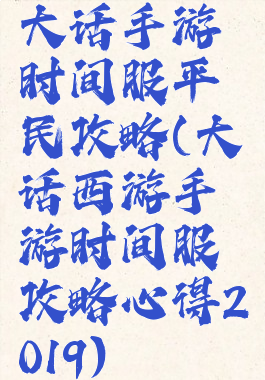 大话手游
时间服平
民攻略(大
话西游手
游时间服
攻略心得2
019)